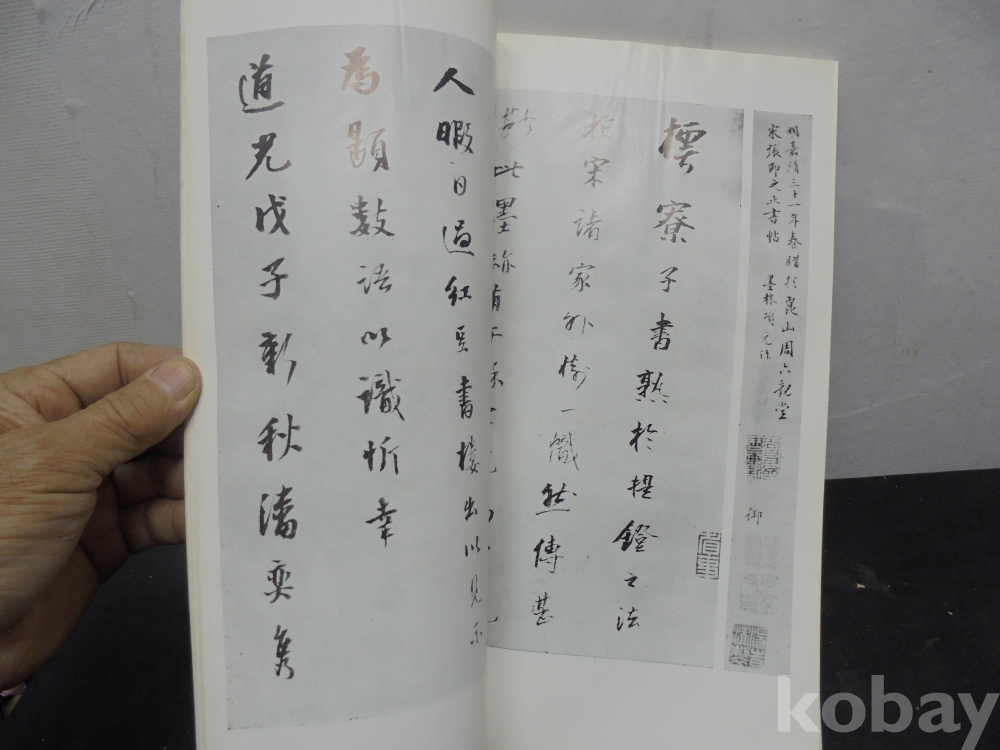 明嘉靖三十一年春購於崑山周六觀堂
宋張即之正書帖 墨林項元汴
御
樗寮子書熟於提鐙之法
於宋諸家外樹一幟然傳甚
此墨跡
人暇日過紅豆書樓出以見示
為題數語以識忻幸
道光戊子新秋潘奕雋
kobay